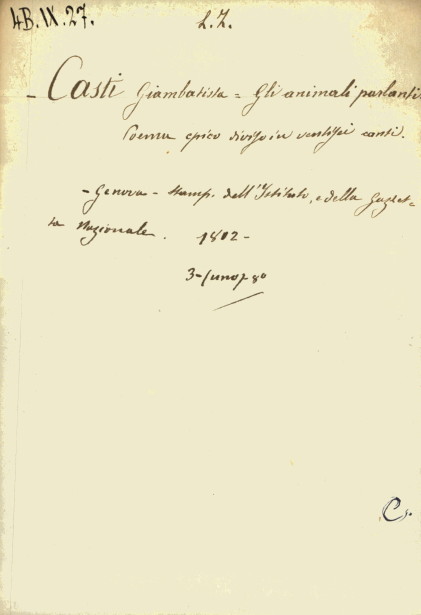 4B.IX.27.
L.Z.
- Casti Giambatista = Gli animali parlanti
Poema epico diviso in ventisei canti.
- Genova - Stamp. dell'Istituto, e della Gazzet=
ta Nazionale.
1802 -
3-